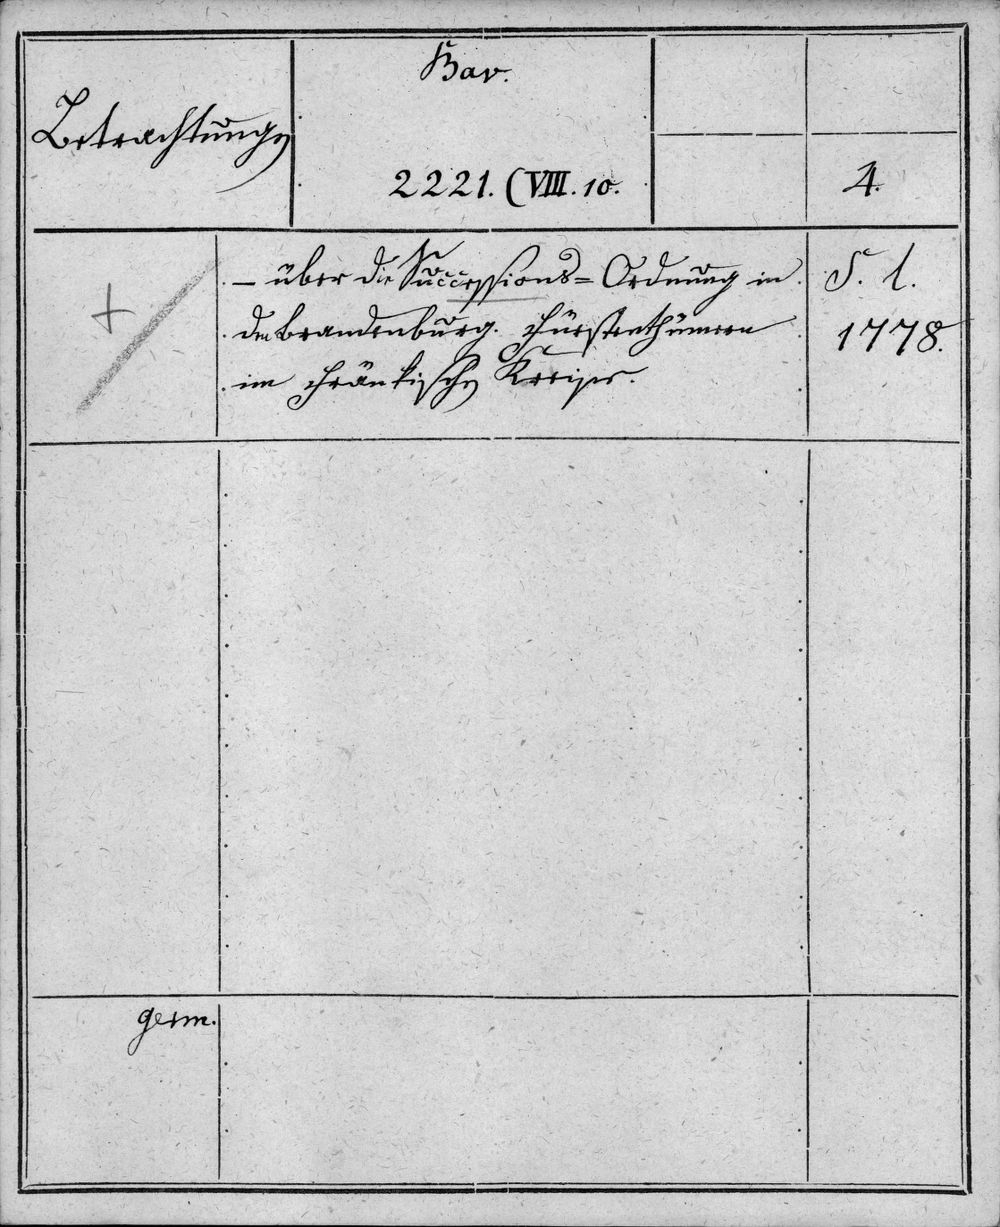 Bav.
Betrachtungen
2221. (VIII. 10.
4.
— über die Successions-Ordnung in
den brandenburg. Fürstenthümern
im Fränkischen Kreise.
S. l.
1778.
+
germ.